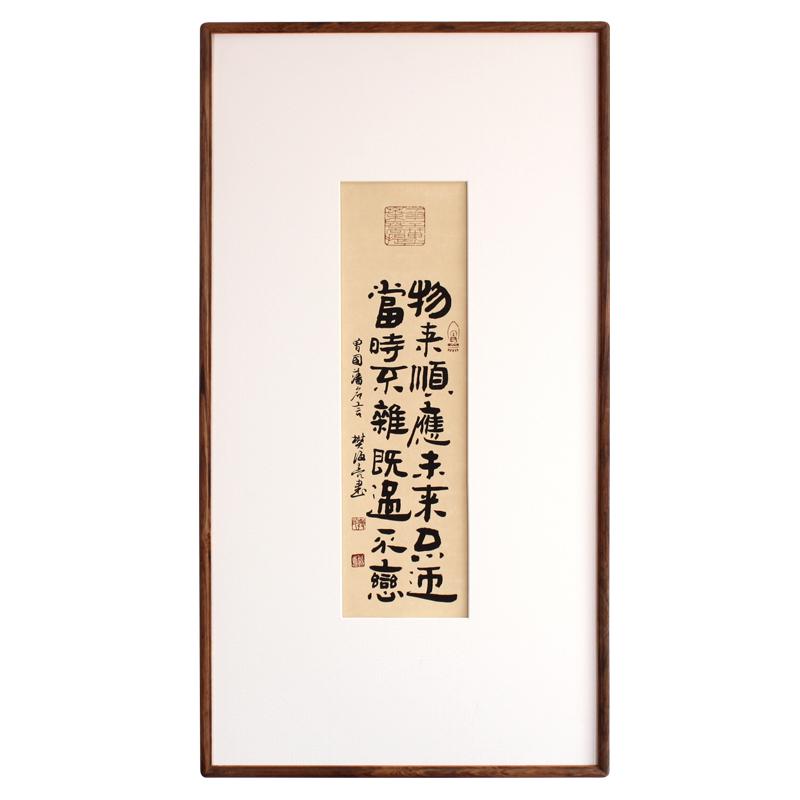 物来順應未来不迎
當時不雜既過不戀
曾國藩名言 樊海亮書